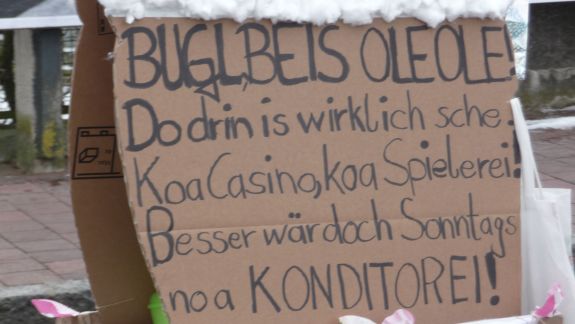 BUGL,BEIS OLEOLE!
Dodrin is wirklich sche.
Koa Casino, koa Spielerei!
Besser wär doch Sonntags
no a KONDITOREI!